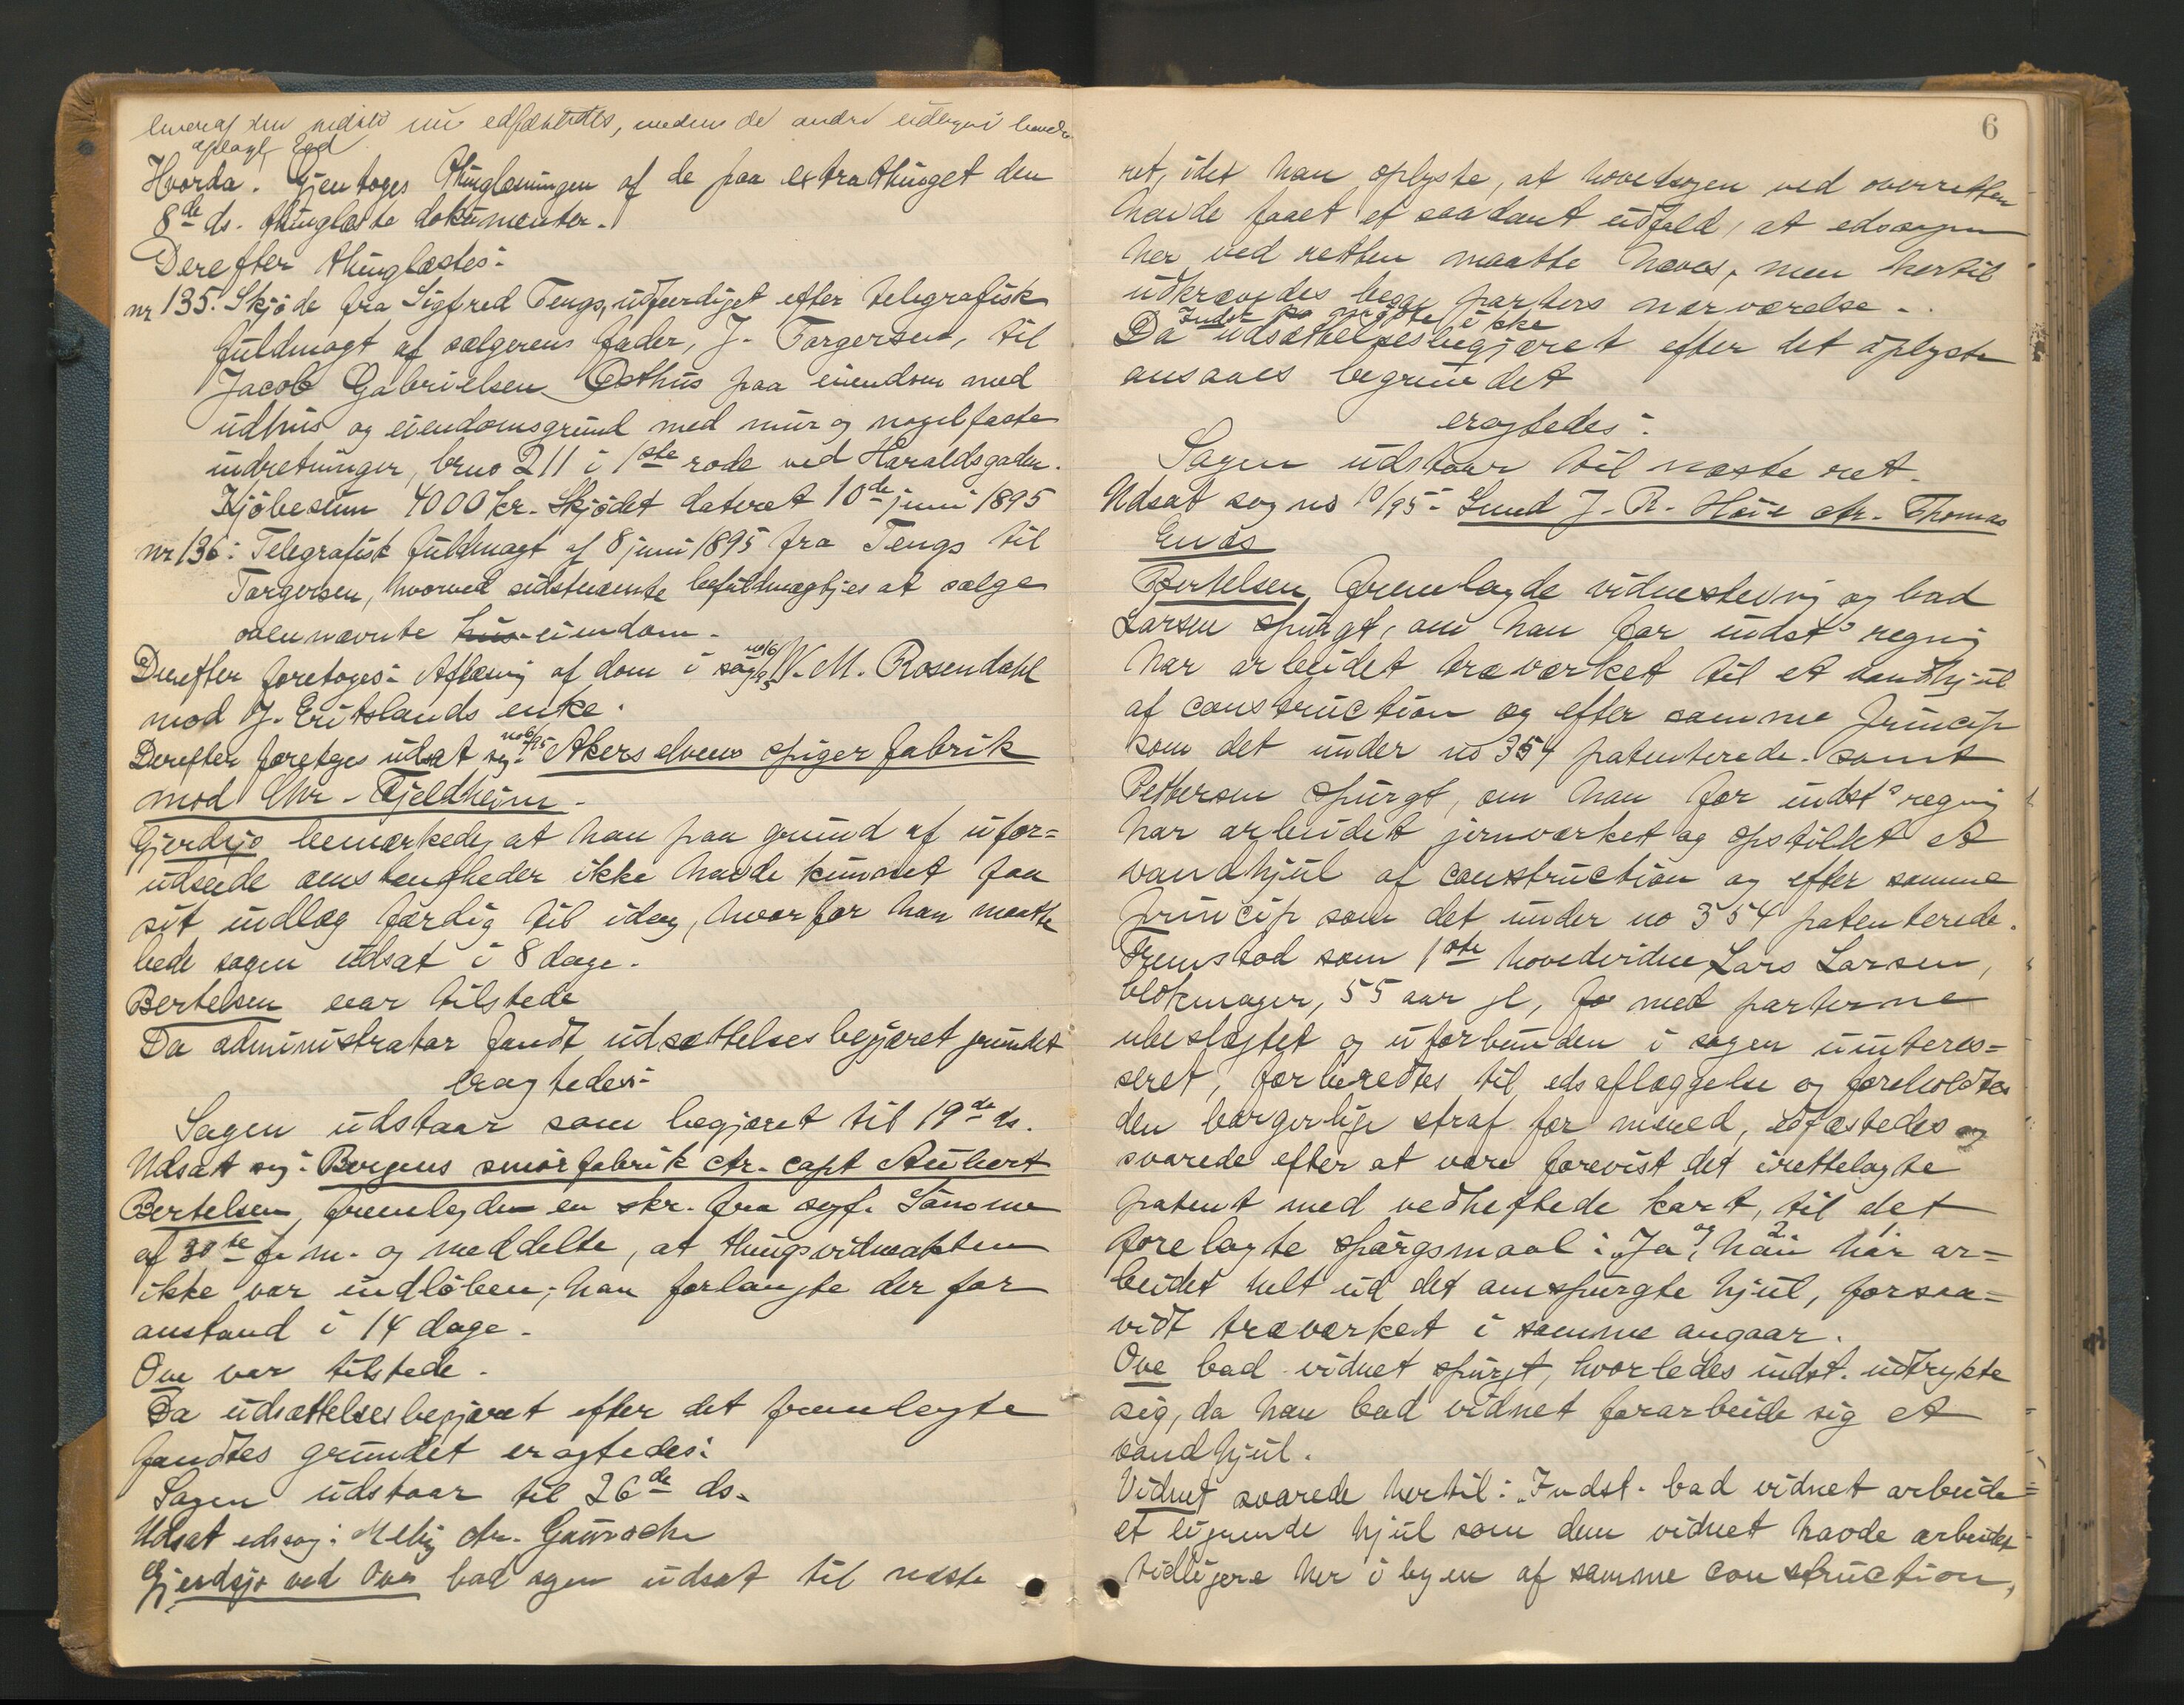 nu edfæstedes, medens de andre
aflagt Ed
Hvorda. Gjentoges thinglæsningen af de paa extrathinget den
8de ds. thinglæste dokumenter.
Derefter thinglæstes:
nr 135. Skjøde fra Sigfred Tengs, udfærdiget efter telegrafisk
fuldmagt af sælgerens fader, J. Torgersen, til
Jacob Gabrielsen Østhus paa eiendom med
udhus og eiendomsgrund med mur og nagelfaste
indretninger, brno 211 i 1ste rode ved Haraldsgaden.
Kjöbesum 4000 kr. Skjödet dateret 10de juni 1895
nr 136: Telegrafisk fuldmagt af 8 juni 1895 fra Tengs til
Torgersen, hvorved sidstnævnte befuldmægtiges at sælge
ovennævnte hus eiendom.
no 6/95
Derefter foretoges: Aflæsning af dom i sag W. M. Rosendahl
mod J. Eritslands enke.
no 6/95
Derefter foretoges udsat sag: Akers elvens spiger fabrik
mod Chr. Fjeldheim.
Gjerdsjø bemærkede, at han paa grund af ufor=
udseede omstændigheder ikke havde kunnet faa
sit indlæg færdig til idag, hvorfor han maatte
bede sagen udsat i 8 dage.
Bertelsen var tilstede
Da administrator fandt udsættelsesbegjæret grundet
eragtedes:
Sagen udstaar som begjæret til 19de ds.
Udsat sag: Bergens smörfabrik ctr. capt Aubert
Bertelsen, fremlagde en skr. fra sagf. Sömme
af 30te f. m. og meddelte, at thingsvidneakten
ikke var indlöben; han forlangte derfor
anstand i 14 dage.
Ove var tilstede.
Da udsættelsesbegjæret efter det fremlagte
fandtes grundet eragtedes:
Sagen udstaar til 26de ds.
Udsat edssag: Melig ctr. Gaüroche
Gjerdsjø ved Ove bad sagen udsat til næste
6
ret, idet han oplyste, at hovedsagen ved overretten
havde faaet et saadant udfald, at edssagen
her ved retten maatte hæves, men hertil
udkrævedes begge parters nærværelse.
Indst. mødte ikke
Da udsættelsesbegjæret efter det oplyste
ansaaes begrundet
eragtedes:
Sagen udstaar til næste ret.
Udsat sag no 10/95: Lund J. R. Höie ctr. Thomas
Enæs
Bertelsen, fremlagde vidnestevning og bad
Larsen spurgt, om han for indsts regning
har arbeidet træværket til et vandhjul
af construction og efter samme princip
som det under no 354 patenterede. samt
Pettersen spurgt, om han for indsts regning
har arbeidet jernværket og opstillet et
vandhjul af construction og efter samme
princip som det under no 354 patenterede.
Fremstod som 1ste hovedvidne Lars Larsen,
blokmager, 55 aar gl, fo med parterne
ubeslægtet og uforbunden i sagen uinteres=
seret, forberedtes til edsaflæggelse og foreholdtes
den borgerlige straf for mened, edfæstedes og
svarede efter at være forevist det irettelagte
patent med vedheftede kart, til det
forelagte spørgsmaal: "Ja", og han har ar=
beidet helt ud det omspurgte hjul, forsaa=
vidt træværket i samme angaar.
Ove bad vidnet spurgt, hvorledes indst. udtrykte
sig, da han bad vidnet forarbeide sig et
vandhjul.
Vidnet svarede hertil: Indst. bad vidnet arbeide
et lignende hjul som dem vidnet havde arbeidet
tidligere her i byen af samme construction,